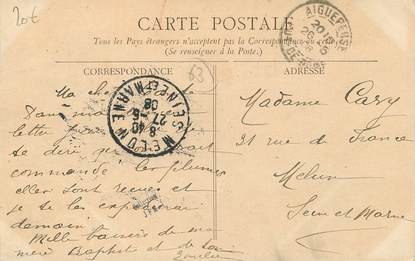 20€
CARTE POSTALE
Tous les Pays étrangers n'acceptent pas la Correspondance
(Se renseigner à la Poste.)
CORRESPONDANCE
ADRESSE
63
AIGUEPERSE
PUY-DE-DOME
20
26-5
08
MELUN
SEINE ET MARNE
8 40
27-5
08
Ma
Dans ma
lettre
se dire qu'
commandé les plumes
elles sont reçues et
je te les expédierai
demain
Mille baisers de ma
mère Baptist et de
Madame Cary
31 rue de France
Melun
Seine et Marne